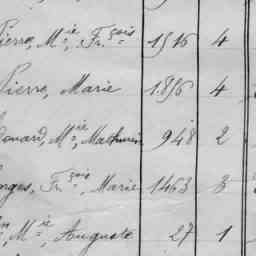 Pierre, Mie, Frçois 1546 4
Pierre, Marie 1896 4
Edouard, Mie, Mathurin 948 2
Georges, Frçois, Marie 1463 3
Mie, Auguste 27 1